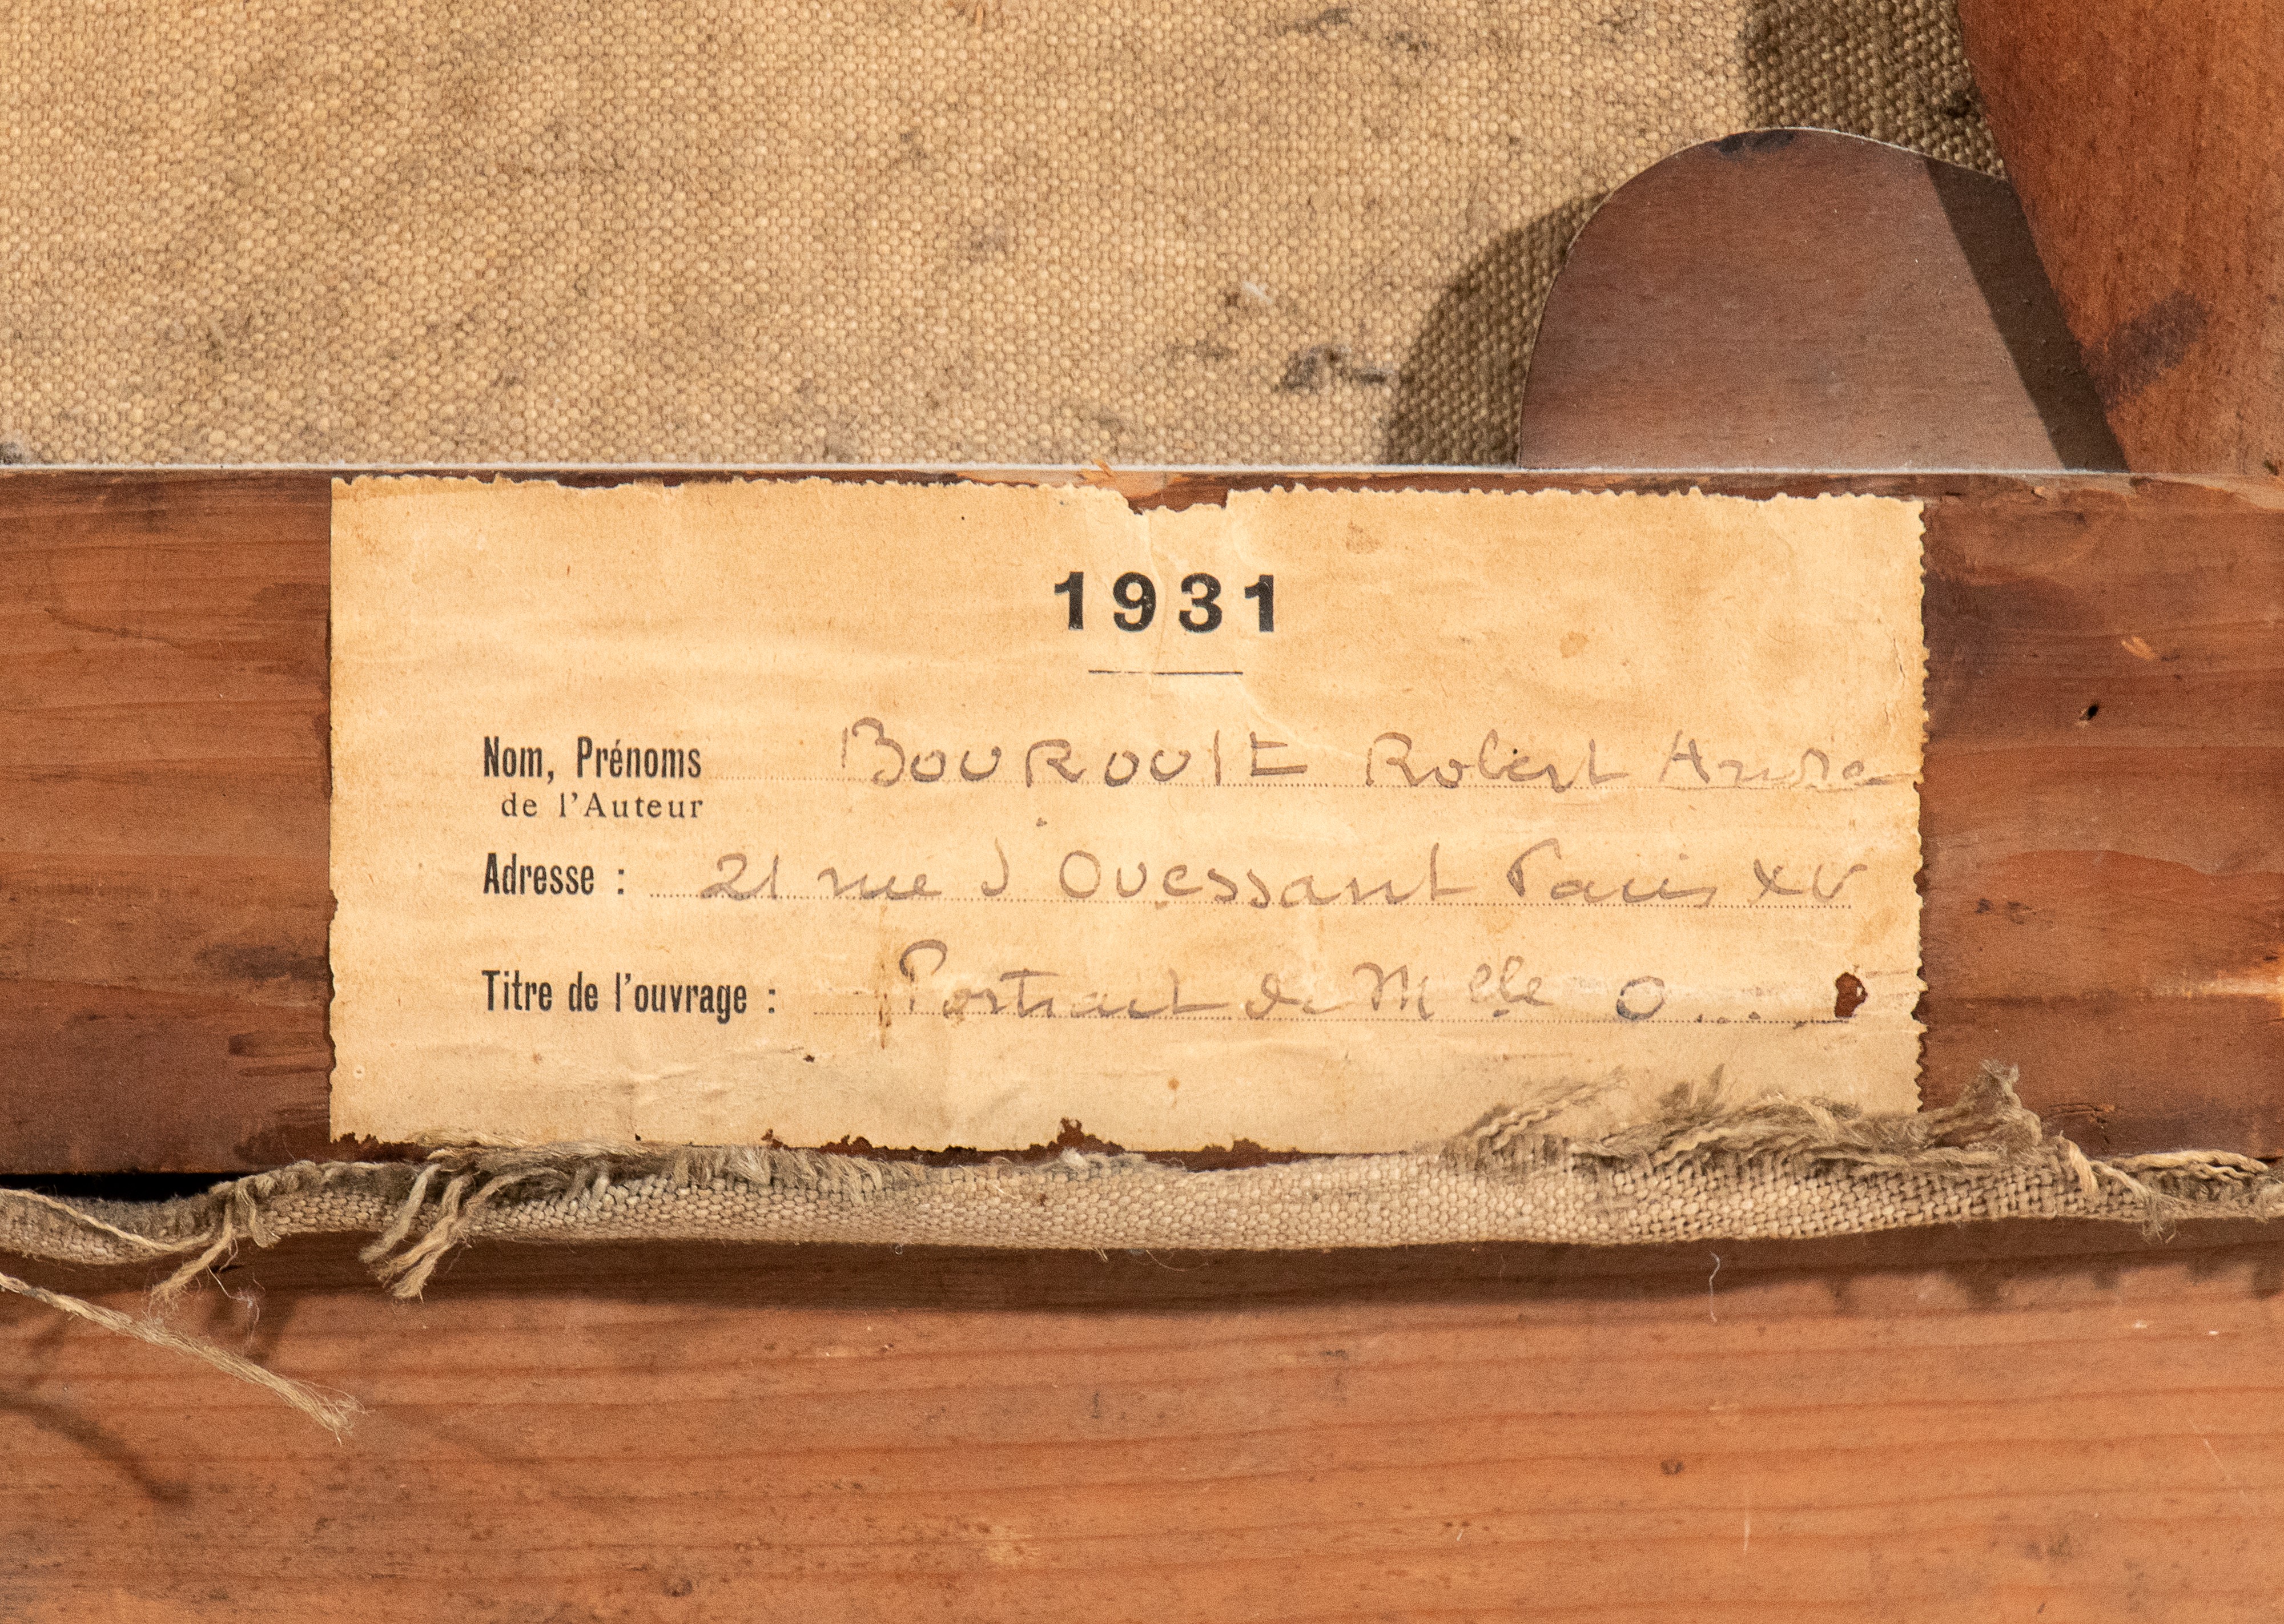 1931
Nom, Prénoms BOUROULT Robert André
de l'Auteur
Adresse : 21 rue d'Ouessant Paris XV
Titre de l'ouvrage : Portrait de Melle O....